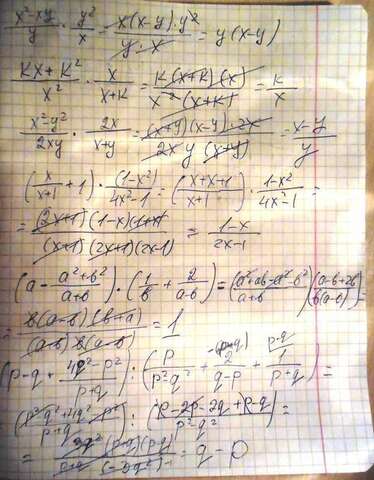 (x²-xy)/y · y²/x = (x(x-y)·y²)/(y·x) = y(x-y)
(kx+k²)/x² · x/(x+k) = (k(x+k)(x))/(x²(x+k)) = k/x
(x²-y²)/(2xy) · 2x/(x+y) = ((x+y)(x-y)·2x)/(2xy(x+y)) = (x-y)/y
(x/(x+1)+1)·(1-x²)/(4x²-1) = ((x+x+1)/(x+1))·(1-x²)/(4x²-1) =
= ((2x+1)(1-x)(1+x))/((x+1)(2x+1)(2x-1)) = (1-x)/(2x-1)
(a-(a²+b²)/(a+b))·(1/b+2/(a-b)) = ((a²+ab-a²-b²)/(a+b))((a-b+2b)/(b(a-b))) =
= (b(a-b)(b+a))/((a+b)b(a-b)) = 1
(p-q+(4q²-p²)/(p+q)):(p/(p²-q²)+2/(q-p)+1/(p+q)) =
= (p²-q²+4q²-p²)/(p+q) : (p-2p-2q+p-q)/(p²-q²) =
= q-p